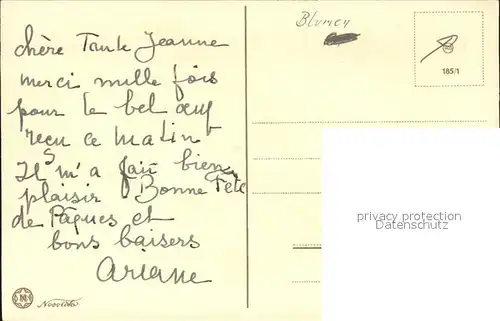 chère Tante Jeanne
merci mille fois
pour le bel œuf
reçu ce matin
Il m'a fait bien
plaisir Bonne Fête
de Pâques et
bons baisers
Ariane
Blumen
185/1
privacy protection
Datenschutz
Novitas